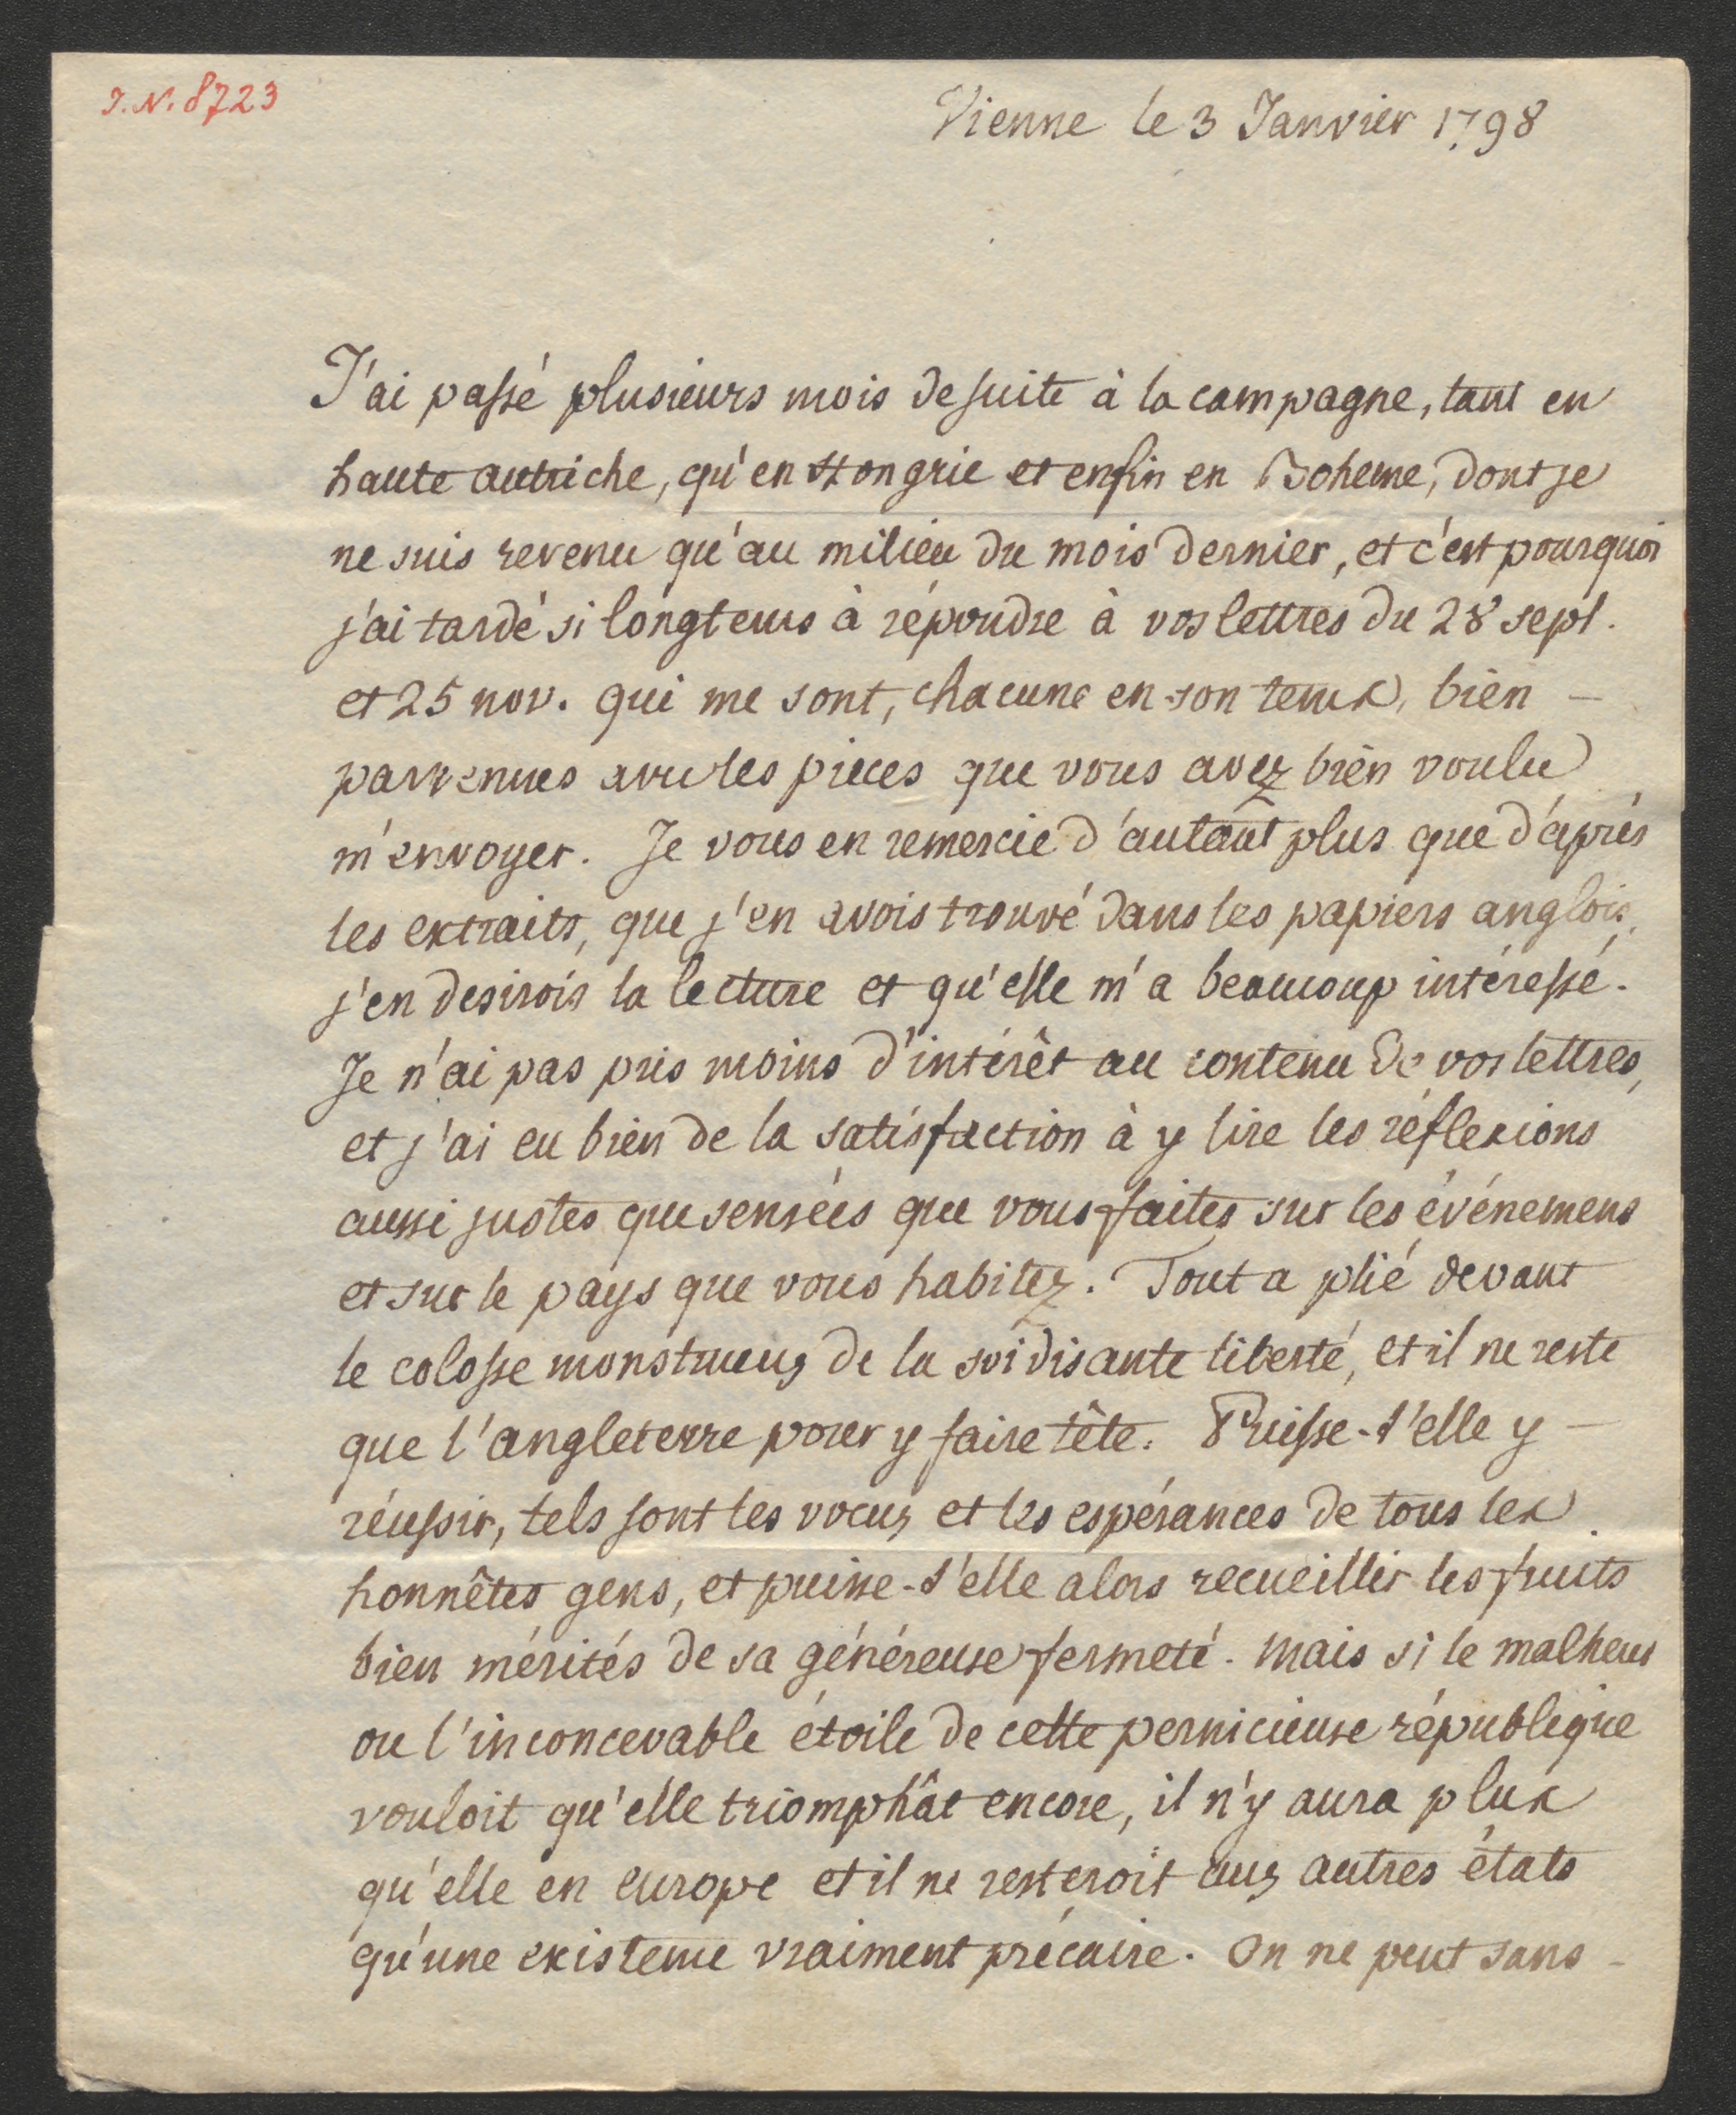 J.N. 8723
Vienne le 3 Janvier 1798
J'ai passé plusieurs mois de suite à la campagne, tant en
haute autriche, qu'en Hongrie et enfin en Boheme, dont je
ne suis revenu qu'au milieu du mois dernier, et c'est pourquoi
j'ai tardé si longtems à répondre à vos lettres du 28 sept.
et 25 nov. qui me sont, chacune en son tems, bien –
parvenues avec les pieces que vous avez bien voulu
m'envoyer. Je vous en remercie d'autant plus que d'après
les extraits, que j'en avois trouvé dans les papiers anglois,
j'en desirois la lecture et qu'elle m'a beaucoup intéressé.
Je n'ai pas pris moins d'intérêt au contenu de vos lettres,
et j'ai eu bien de la satisfaction à y lire les réflexions
aussi justes que sensées que vous faites sur les événemens
et sur le pays que vous habitez. Tout a plié devant
le colosse monstrueux de la soi disante liberté, et il ne reste
que l'angleterre pour y faire tête. Puisse-t'elle y –
réussir, tels sont les voeux et les espérances de tous les
honnêtes gens, et puisse-t'elle alors recueillir les fruits
bien mérités de sa généreuse fermeté. Mais si le malheur
ou l'inconcevable étoile de cette pernicieuse république
vouloit qu'elle triomphât encore, il n'y aura plus
qu'elle en europe et il ne resteroit aux autres états
qu'une existence vraiment précaire. On ne peut sans –